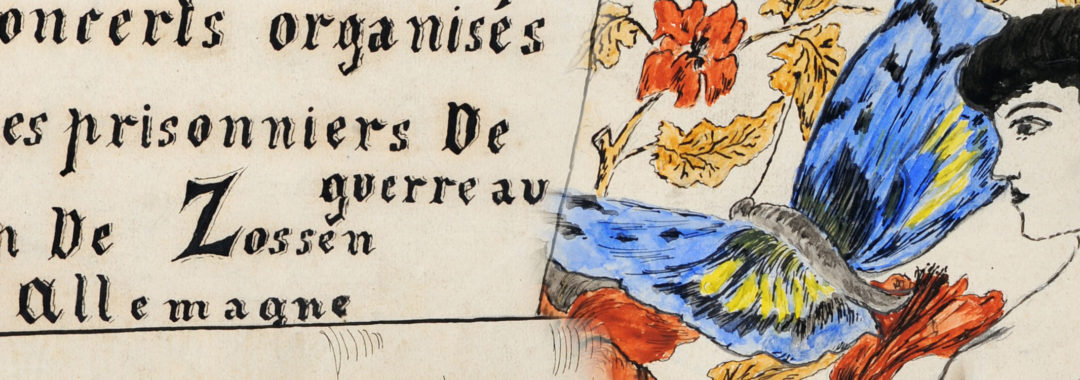 oncerts organisés
es prisonniers De
guerre au
n De Zossen
Allemagne